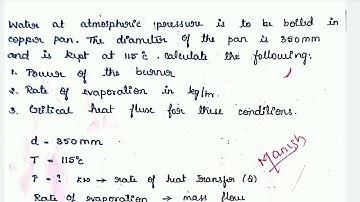 Water at atmospheric pressure is to be boiled in
copper pan. The diameter of the pan is 350mm
and is kept at 115°C. calculate the following:
1. Power of the burner
2. Rate of evaporation in kg/m.
3. Critical heat flux for these conditions.
d = 350mm
T = 115°C
P = ? kW → rate of heat transfer (Q)
Rate of evaporation → mass flow
Manish